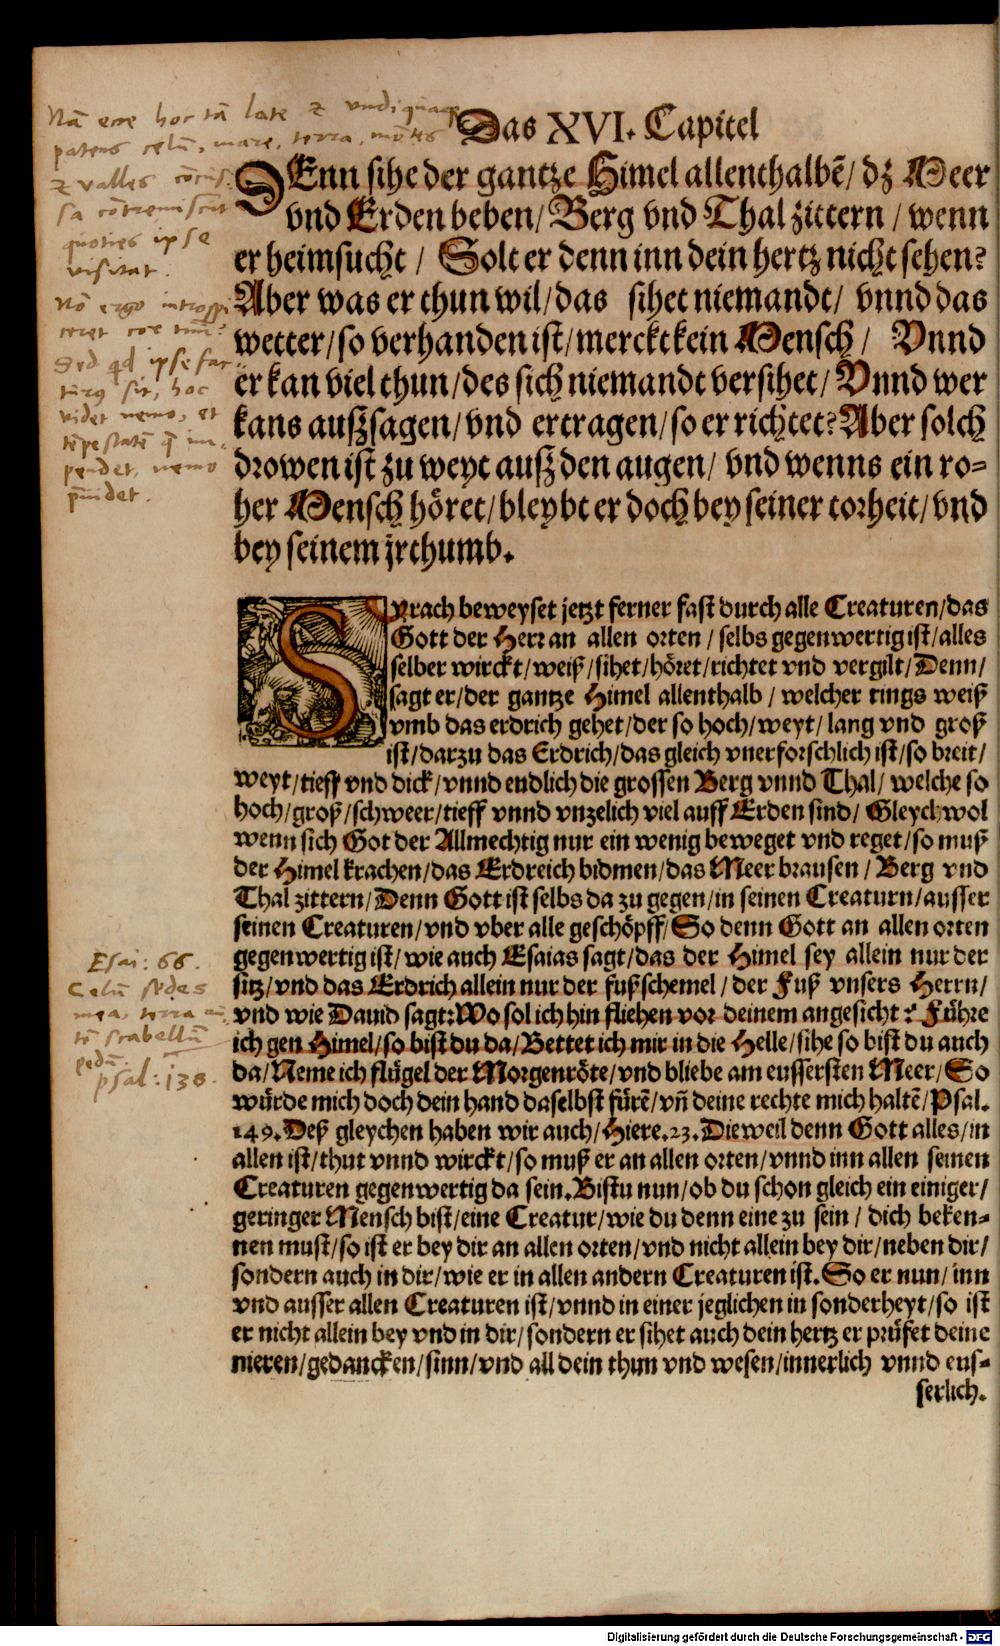 Das XVI. Capitel
DEnn sihe der gantze Himel allenthalbẽ/ dz Meer
vnd Erden beben/ Berg vnd Thal zittern / wenn
er heimsucht / Solt er denn inn dein hertz nicht sehen?
Aber was er thun wil/das sihet niemandt/ vnnd das
wetter/so verhanden ist/merckt kein Mensch / Vnnd
er kan viel thun/des sich niemandt versihet/ Vnnd wer
kans außsagen/vnd ertragen/so er richtet? Aber solch
drowen ist zu weyt auß den augen/ vnd wenns ein ro-
her Mensch höret/bleybt er doch bey seiner torheit/vnd
bey seinem jrthumb.
Nã ecce hoc tã late & vndiquaque
patens cęlũ, mare, terra, mõtes
& valles cõcus-
sa cõtremiscũt
quoties ipse
visitat.
Nõ ergo introspi
ceret cor tuũ?
Sed qd ipse fac-
turus sit, hoc
videt nemo, et
tẽpestatẽ q̃ im-
pendet, nemo
p̃uidet.
Syrach beweyset jetzt ferner fast durch alle Creaturen/das
Gott der Herr an allen orten / selbs gegenwertig ist/alles
selber wirckt/weiß/sihet/höret/richtet vnd vergilt/Denn/
sagt er/der gantze Himel allenthalb / welcher rings weiß
vmb das erdrich gehet/der so hoch/weyt/lang vnd groß
ist/darzu das Erdrich/das gleich vnerforschlich ist/so breit/
weyt/tieff vnd dick/vnnd endlich die grossen Berg vnnd Thal/ welche so
hoch/groß/schweer/tieff vnnd vnzelich viel auff Erden sind/ Gleychwol
wenn sich Got der Allmechtig nur ein wenig beweget vnd reget/so muß
der Himel krachen/das Erdreich bidmen/das Meer brausen / Berg vnd
Thal zittern/Denn Gott ist selbs da zu gegen/in seinen Creaturn/ausser
seinen Creaturen/vnd vber alle geschöpff/So denn Gott an allen orten
gegenwertig ist/wie auch Esaias sagt/das der Himel sey allein nur der
sitz/vnd das Erdrich allein nur der fußschemel/der Fuß vnsers Herrn/
vnd wie Dauid sagt: Wo sol ich hin fliehen vor deinem angesicht? Führe
ich gen Himel/so bist du da/Bettet ich mir in die Helle/sihe so bist du auch
da/Neme ich flügel der Morgenröte/vnd bliebe am eussersten Meer/So
würde mich doch dein hand daselbst fürẽ/vñ deine rechte mich haltẽ/Psal.
149. Deß gleychen haben wir auch/Hiere.23. Dieweil denn Gott alles/in
allen ist/thut vnnd wirckt/so muß er an allen orten/vnnd inn allen seinen
Creaturen gegenwertig da sein. Bistu nun/ob du schon gleich ein einiger/
geringer Mensch bist/eine Creatur/wie du denn eine zu sein / dich beken-
nen must/so ist er bey dir an allen orten/vnd nicht allein bey dir/neben dir/
sondern auch in dir/wie er in allen andern Creaturen ist. So er nun/inn
vnd ausser allen Creaturen ist/vnnd in einer jeglichen in sonderheyt/so ist
er nicht allein bey vnd in dir/sondern er sihet auch dein hertz er prüfet deine
nieren/gedancken/sinn/vnd all dein thun vnd wesen/innerlich vnnd eus-
serlich.
Esai: 66.
Cęlũ sedes
mea, terra
scabellũ
pedũ.
psal: 138.
Digitalisierung gefördert durch die Deutsche Forschungsgemeinschaft - DFG